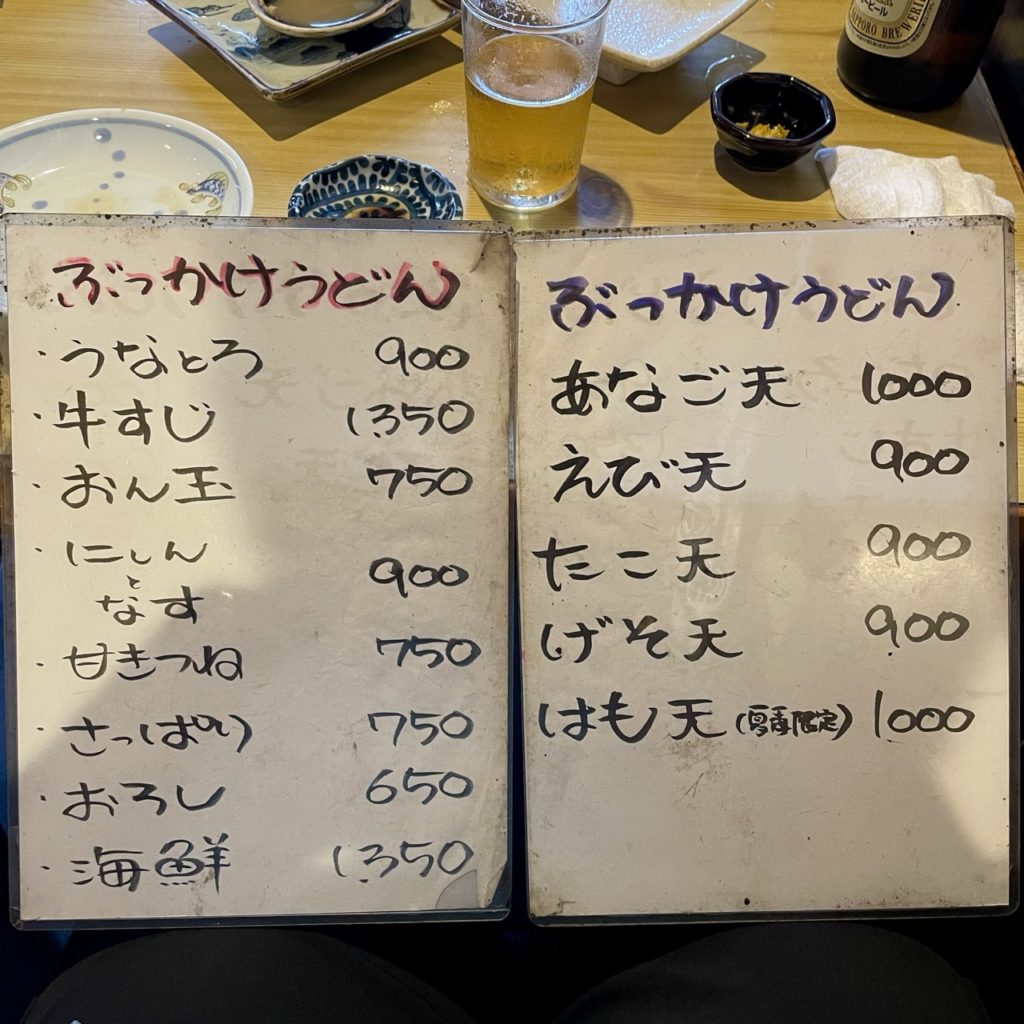 ぶっかけうどん
・うなとろ 900
・牛すじ 1350
・おん玉 750
・にしん
と
なす 900
・甘きつね 750
・さっぱり 750
・おろし 650
・海鮮 1350
ぶっかけうどん
あなご天 1000
えび天 900
たこ天 900
げそ天 900
はも天(夏季限定) 1000
ビール
SAPPORO BREWERIE